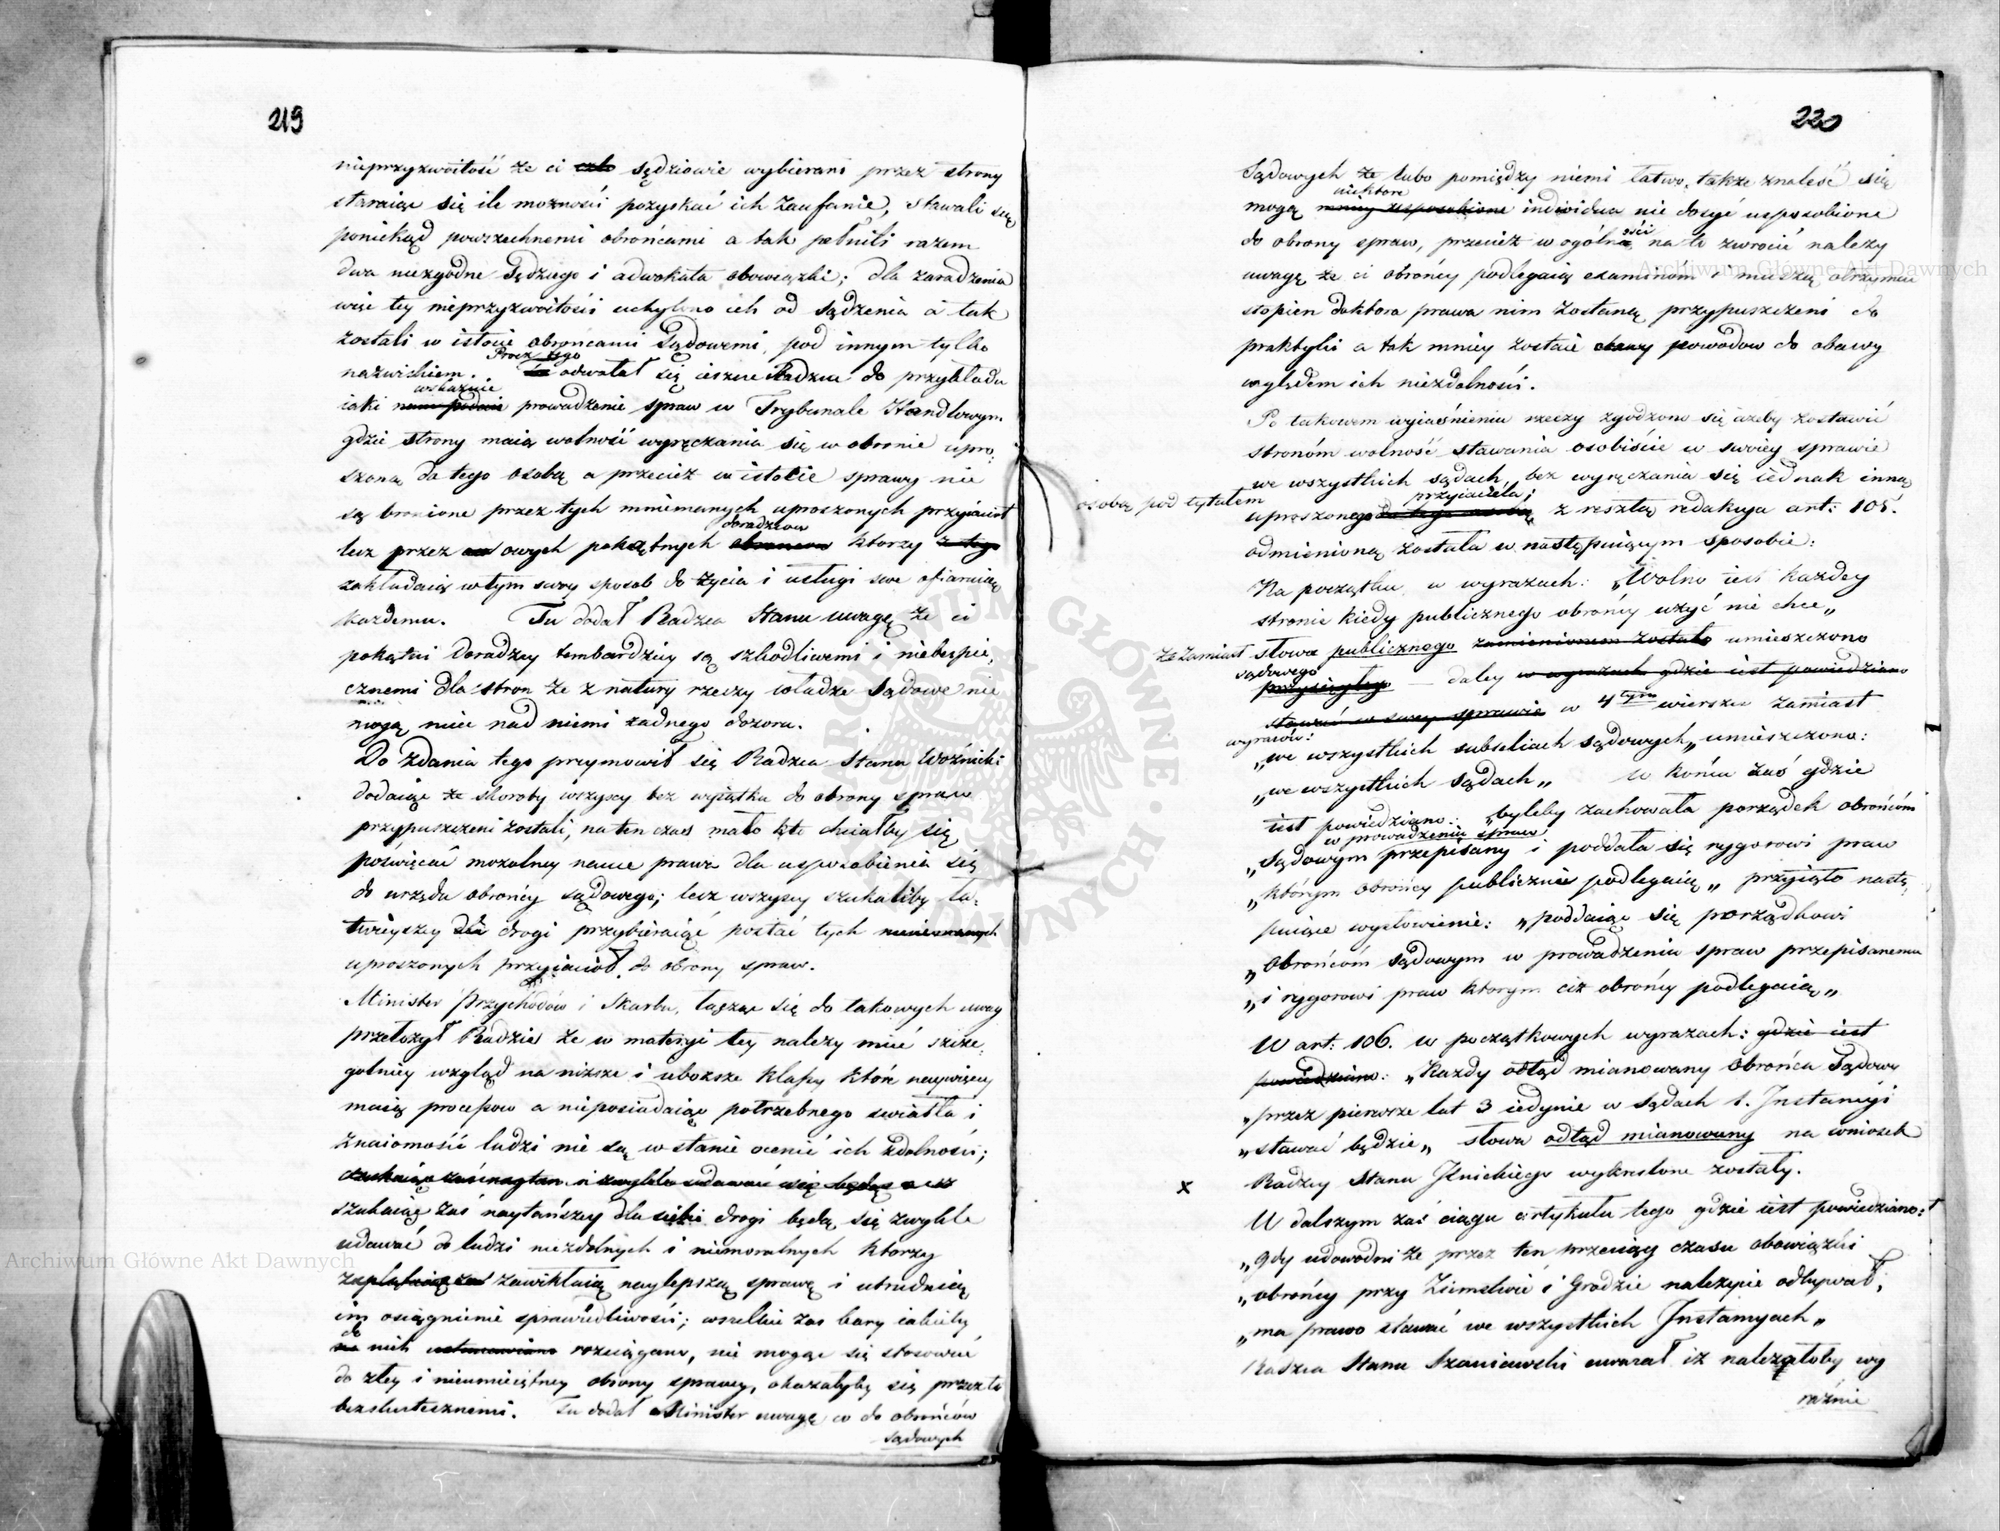 219
nieprzyzwoitość że ci sędziowie wybierani przez strony
staraiąc się ile możności pozyskać ich zaufanie, stawali się
poniekąd powszechnemi obrońcami a tak pełnili razem
dwa niezgodne Sędziego i adwokata obowiązki; dla zaradzenia
więc tey nieprzyzwoitości uchylono ich od sądzenia a tak
zostali w istocie obrońcami Sądowemi, pod innym tylko
Procz tego
nazwiskiem. odwołał się ieszcze Radzca do przykładu
wskazuie
iaki nam podaie prowadzenie spraw w Trybunale Handlowym
gdzie strony maią wolność wyręczania się w obronie upro-
szoną do tego osobą a przecież w istocie sprawy nie
są bronione przez tych mniemanych uproszonych przyiaciół
doradzców
lecz przez owych pokątnych obronców którzy z tego
zakładaią w tym swoy sposob do życia i usługi swe ofiaruią
każdemu. Tu dodał Radzca Stanu uwagę że ci
pokątni doradzcy tembardziey są szkodliwemi i niebeśpie-
cznemi dla stron że z natury rzeczy władze Sądowe nie
mogą miec nad niemi żadnego dozoru.
Do zdania tego przymowił się Radzca Stanu Woźnicki
dodaiąc że skoroby wszyscy bez wyiątku do obrony spraw
przypuszczeni zostali, na ten czas mało kto chciałby się
poświęcać mozolney nauce prawa dla usposobienia się
do urzędu obrońcy sądowego; lecz wszyscy szukaliby ła-
twieyszey drogi przybieraiąc postać tych mniemanych
uproszonych przyiaciół do obrony spraw.
Minister Przychodów i Skarbu, łącząc się do takowych uwag
przełożył Radzie że w materyi tey należy mieć szcze-
gólniey wzgląd na niższe i uboższe klassy które naywięcey
maią processow a nieposiadaiąc potrzebnego światła i
znaiomości ludzi nie są w stanie ocenić ich zdolności;
szukaiąc zaś naytańszey dla siebie drogi będą się zwykle
udawać do ludzi niezdolnych i niemoralnych którzy
zawikłaią naylepszą sprawę i utrudnią
im osiągnienie sprawiedliwości; wszelkie zas kary iakieby
do
na nich ustanowiano rozciągano, nie mogąc się stosować
do złey i nieumieiętney obrony sprawy, okazałyby się przez to
bezskutecznemi. Tu dodał Minister uwagę co do obrońców
sądowych
220
Sądowych że lubo pomiędzy niemi łatwo także znaleść się
niektore
mogą mniey usposobione individua nie dosyć usposobione
do obrony spraw, przecież w ogólności na to zwrócić należy
uwagę że ci obrońcy podlegaią examinom i muszą otrzymać
stopien doktora prawa nim zostaną przypuszczeni do
praktyki a tak mniey zostaie powodow do obawy
względem ich niezdolności.
Po takowem wyiaśnieniu rzeczy zgodzono się ażeby zostawić
stronóm wolność stawania osobiście w swoiey sprawie
we wszystkich sądach, bez wyręczania się iednak inną
osobą pod tytułem
przyiaciela;
uproszonego do tego osobą z resztą redakcya art: 105.
odmienioną została w następuiącym sposobie:
Na początku w wyrazach: „Wolno iest każdey
stronie kiedy publicznego obrońcy użyć nie chce„
że zamiast słowa publicznego zamienionem zostało umieszczono
sądowego
przysięgłego — daley w wyrazach gdzie iest powiedziano
stawać w swey sprawie w 4tym wierszu zamiast
wyrazów:
„we wszystkich subseliach sądowych„ umieszczono:
„we wszystkich sądach„ w końcu zaś gdzie
iest powiedziano: „byleby zachowała porządek obrońcóm
w prowadzeniu spraw
„sądowym przepisany i poddała się rygorowi praw
„którym obrońcy publicznie podlegaią„ przyięto nastę-
puiące wysłowienie: „poddaiąc się porządkowi
„Obrońcóm sądowym w prowadzeniu spraw przepisanemu
„i rygorowi praw którym ciż obrońcy podlegaią„
W art: 106. w początkowych wyrazach: gdzie iest
powiedziano: „Każdy odtąd mianowany Obrońca Sądowy
„przez pierwsze lat 3 iedynie w Sądach 1. Instancyi
„stawać będzie„ słowa odtąd mianowany na wniosek
x Radzcy Stanu Ilnickiego wykreslone zostały.
W dalszym zaś ciągu artykułu tego gdzie iest powiedziano:
„gdy udowodni że przez ten przeciąg czasu obowiązki
„obrońcy przy Ziemstwie i Grodzie należycie odbywał,
„ma prawo stawać we wszystkich Instancyach„
Radzca Stanu Szaniawski uważał iż należałoby wy
raźnie